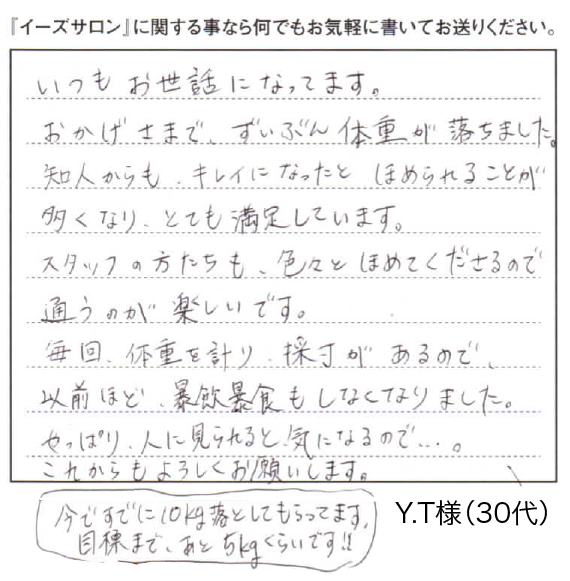 『イーズサロン』に関する事なら何でもお気軽に書いてお送りください。
いつもお世話になってます。
おかげさまで、ずいぶん体重が落ちました。
知人からも、キレイになったとほめられることが
多くなり、とても満足しています。
スタッフの方たちも、色々とほめてくださるので
通うのが楽しいです。
毎回、体重を計り、採寸があるので、
以前ほど、暴飲暴食もしなくなりました。
やっぱり、人に見られると気になるので…。
これからもよろしくお願いします。
今ですでに10kg落としてもらってます。
目標まで、あと5kgくらいです!!
Y.T様(30代)